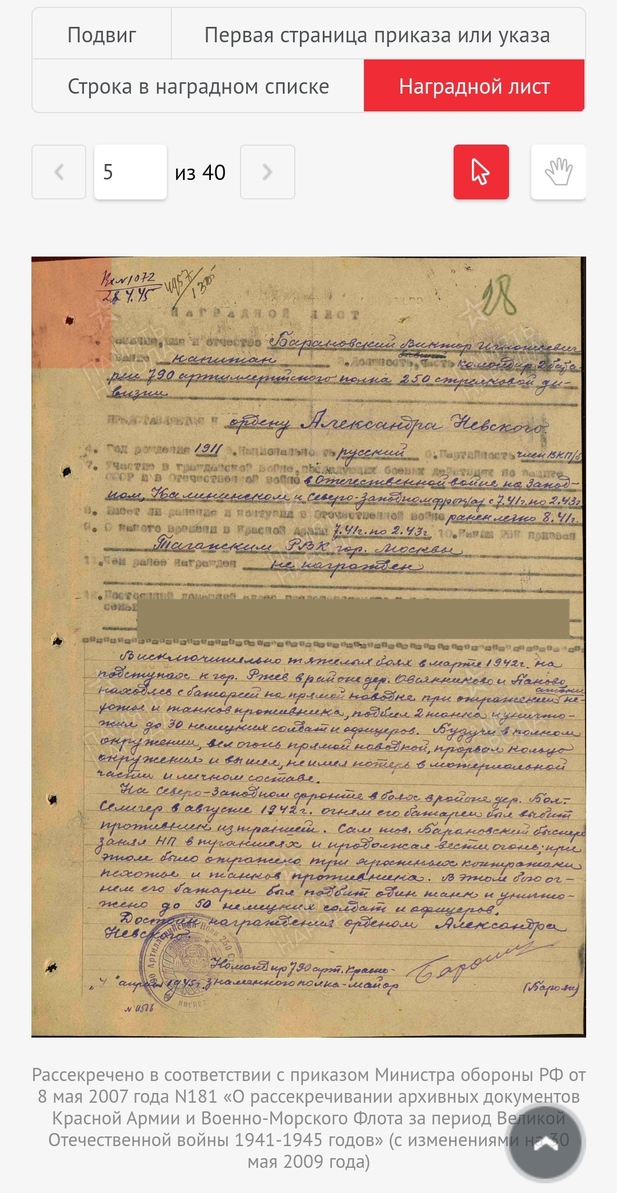 Подвиг
Первая страница приказа или указа
Строка в наградном списке
Наградной лист
5 из 40
Вх №1072
28.4.45
28
НАГРАДНОЙ ЛИСТ
1. Фамилия, имя и отчество Барановский Виктор Игнатьевич
2. Звание капитан 3. Должность, часть командир батаре-
реи 790 артиллерийского полка 250 стрелковой ди-
визии
ПРЕДСТАВЛЯЕТСЯ К ордену Александра Невского
4. Год рождения 1911 5. Национальность русский 6. Партийность член ВКП/б
7. Участие в гражданской войне, последующих боевых действиях по защите
СССР и в Отечественной войне в Отечественной войне на Запад-
ном, Калининском и Северо-западном фронтах с 7.41г. по 2.43г.
8. Имеет ли ранения и контузии в Отечественной войне ранен легко 8.41г.
9. С какого времени в Красной Армии 7.41г. по 2.43г. 10. Каким РВК призван
Таганским РВК гор. Москвы
11. Чем ранее награжден не награжден
12. Постоянный домашний адрес
семьи
В исключительно тяжелых боях в марте 1942г. на
подступах к гор. Ржев в районе дер. Овсянниково и Паново
находясь с батареей на прямой наводке при отражении атаки пе-
хоты и танков противника, подбил 2 танка и уничто-
жил до 30 немецких солдат и офицеров. Будучи в полном
окружении, вел огонь прямой наводкой, прорвал кольцо
окружения и вышел, не имея потерь в материальной
части и личном составе.
На Северо-Западном фронте в боях в районе дер. Бол.
Селигер в августе 1942г. огнем его батареи был выбит
противник из траншеи. Сам тов. Барановский быстро
занял НП в траншеях и продолжая вести огонь; при
этом было отражено три яростных контратаки
пехоты и танков противника. В этом бою ог-
нем его батареи был подбит один танк и уничто-
жено до 50 немецких солдат и офицеров.
Достоин награждения орденом Александра
Невского.
Командир 790 арт. Красно-
"4" апреля 1945г. знаменного полка - майор (Бароян)
Рассекречено в соответствии с приказом Министра обороны РФ от
8 мая 2007 года N181 «О рассекречивании архивных документов
Красной Армии и Военно-Морского Флота за период Великой
Отечественной войны 1941-1945 годов» (с изменениями на 30
мая 2009 года)